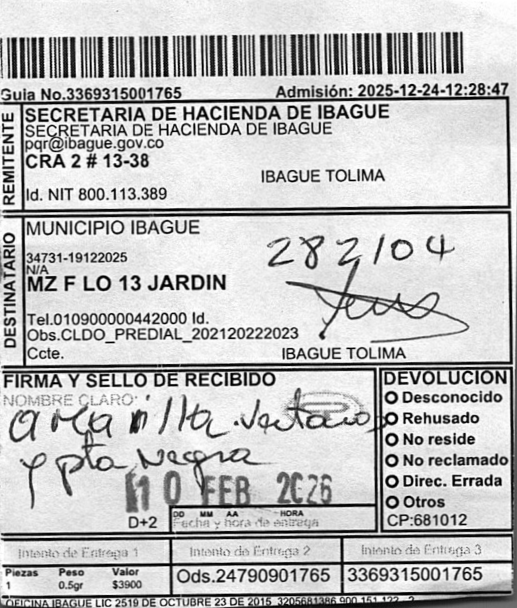 Guia No.3369315001765 Admisión: 2025-12-24-12:28:47
REMITENTE
SECRETARIA DE HACIENDA DE IBAGUE
SECRETARIA DE HACIENDA DE IBAGUE
pqr@ibague.gov.co
CRA 2 # 13-38
IBAGUE TOLIMA
Id. NIT 800.113.389
DESTINATARIO
MUNICIPIO IBAGUE
282104
34731-19122025
N/A
MZ F LO 13 JARDIN
Tel.010900000442000 Id.
Obs.CLDO_PREDIAL_202120222023
Ccte. IBAGUE TOLIMA
FIRMA Y SELLO DE RECIBIDO
NOMBRE CLARO:
amarilla. ventanas
y pta negra
10 FEB 2026
D+2
DD MM AA HORA
Fecha y hora de entrega
DEVOLUCIÓN
Desconocido
Rehusado
No reside
No reclamado
Direc. Errada
Otros
CP:681012
Intento de Entrega 1 Intento de Entrega 2 Intento de Entrega 3
Piezas Peso Valor
1 0.5gr $3900
Ods.24790901765 3369315001765
OFICINA IBAGUE LIC 2519 DE OCTUBRE 23 DE 2015 3205681386 900.151.122